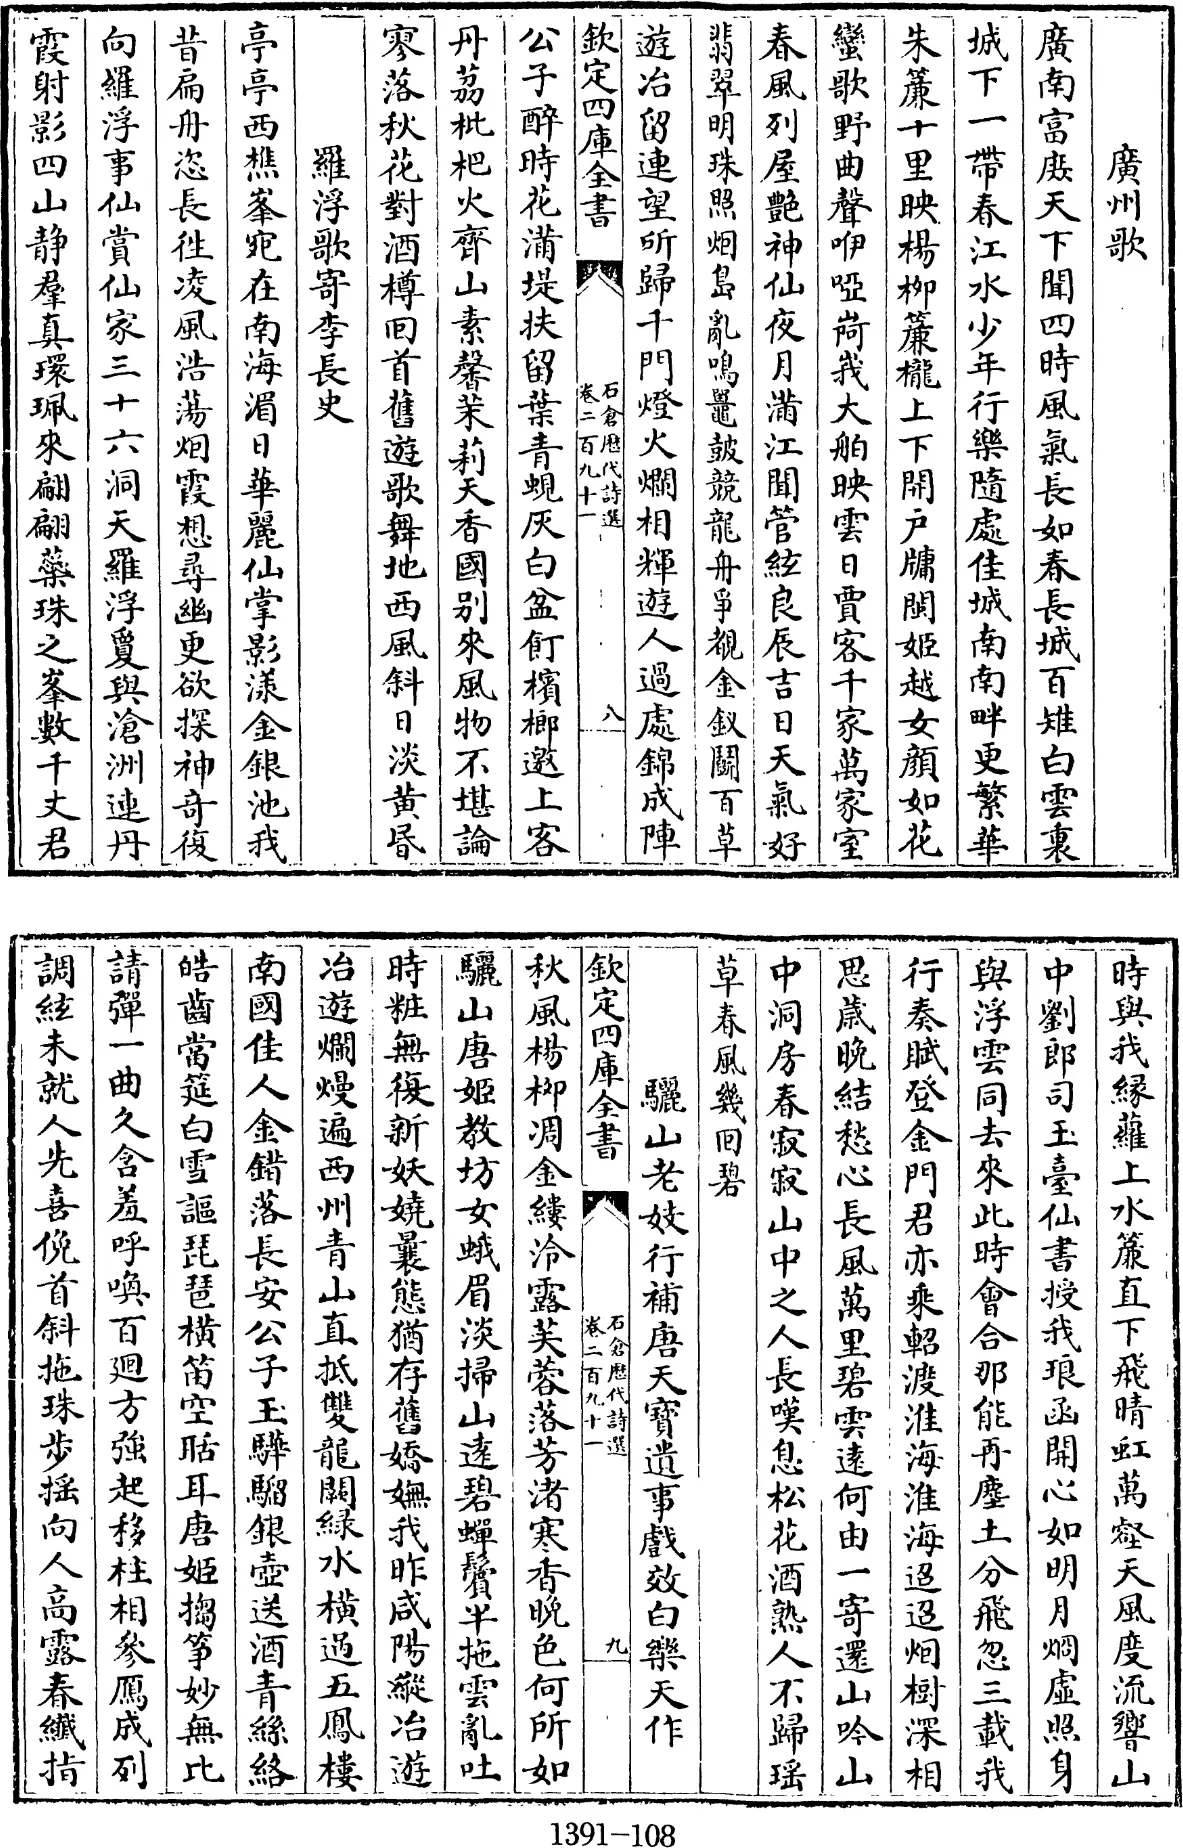 廣州歌
廣南富庶天下聞四時風氣長如春長城百雉白雲裏
城下一帶春江水少年行樂隨處佳城南南畔更繁華
朱簾十里映楊栁簾櫳上下開户牖閩姬越女顔如花
蠻歌野曲聲咿啞岢我大舶映雲日賈客千家萬家室
春風列屋艶神仙夜月滿江聞管絃良辰吉日天氣好
翡翠明珠照烟島亂鳴鼉皷競龍舟爭覩金釵鬭百草
遊冶留連望所歸千門燈火爛相輝遊人過處錦成陣
欽定四庫全書
石倉歴代詩選
卷二百九十一
八
公子醉時花滿堤扶留葉青蜆灰白盆飣檳榔邀上客
丹荔枇杷火齊山素馨茉莉天香國别來風物不堪論
寥落秋花對酒樽回首舊遊歌舞地西風斜日淡黄昏
羅浮歌寄李長史
亭亭西樵峯宛在南海湄日華麗仙掌影漾金銀池我
昔扁舟恣長徃凌風浩蕩烟霞想尋幽更欲探神竒復
向羅浮事仙賞仙家三十六洞天羅浮夐與滄洲連丹
霞射影四山静羣真環珮來翩翩蘂珠之峯數千丈君
時與我緣蘿上水簾直下飛晴虹萬壑天風度流響山
中劉郎司玉臺仙書授我琅函開心如明月烱虛照身
與浮雲同去來此時會合那能再塵土分飛忽三載我
行奏賦登金門君亦乘軺渡淮海淮海迢迢烟樹深相
思歲晚結愁心長風萬里碧雲逺何由一寄還山吟山
中洞房春寂寂山中之人長嘆息松花酒熟人不歸瑶
草春風幾回碧
驪山老妓行補唐天寳遺事戲效白樂天作
欽定四庫全書
石倉歴代詩選
卷二百九十一
九
秋風楊栁凋金縷冷露芙蓉落芳渚寒香晚色何所如
驪山唐姬教坊女蛾眉淡掃山逺碧蟬鬢半拖雲亂吐
時粧無復新妖嬈曩態猶存舊嬌嫵我昨咸陽縱冶遊
冶遊爛熳遍西州青山直抵雙龍闕緑水横過五鳳樓
南國佳人金錯落長安公子玉驊騮銀壺送酒青絲絡
皓齒當筵白雪謳琵琶横笛空聒耳唐姬搊筝妙無比
請彈一曲久含羞呼喚百廻方強起移柱相參鴈成列
調絃未就人先喜俛首斜拖珠步摇向人高露春纎指
1391-108